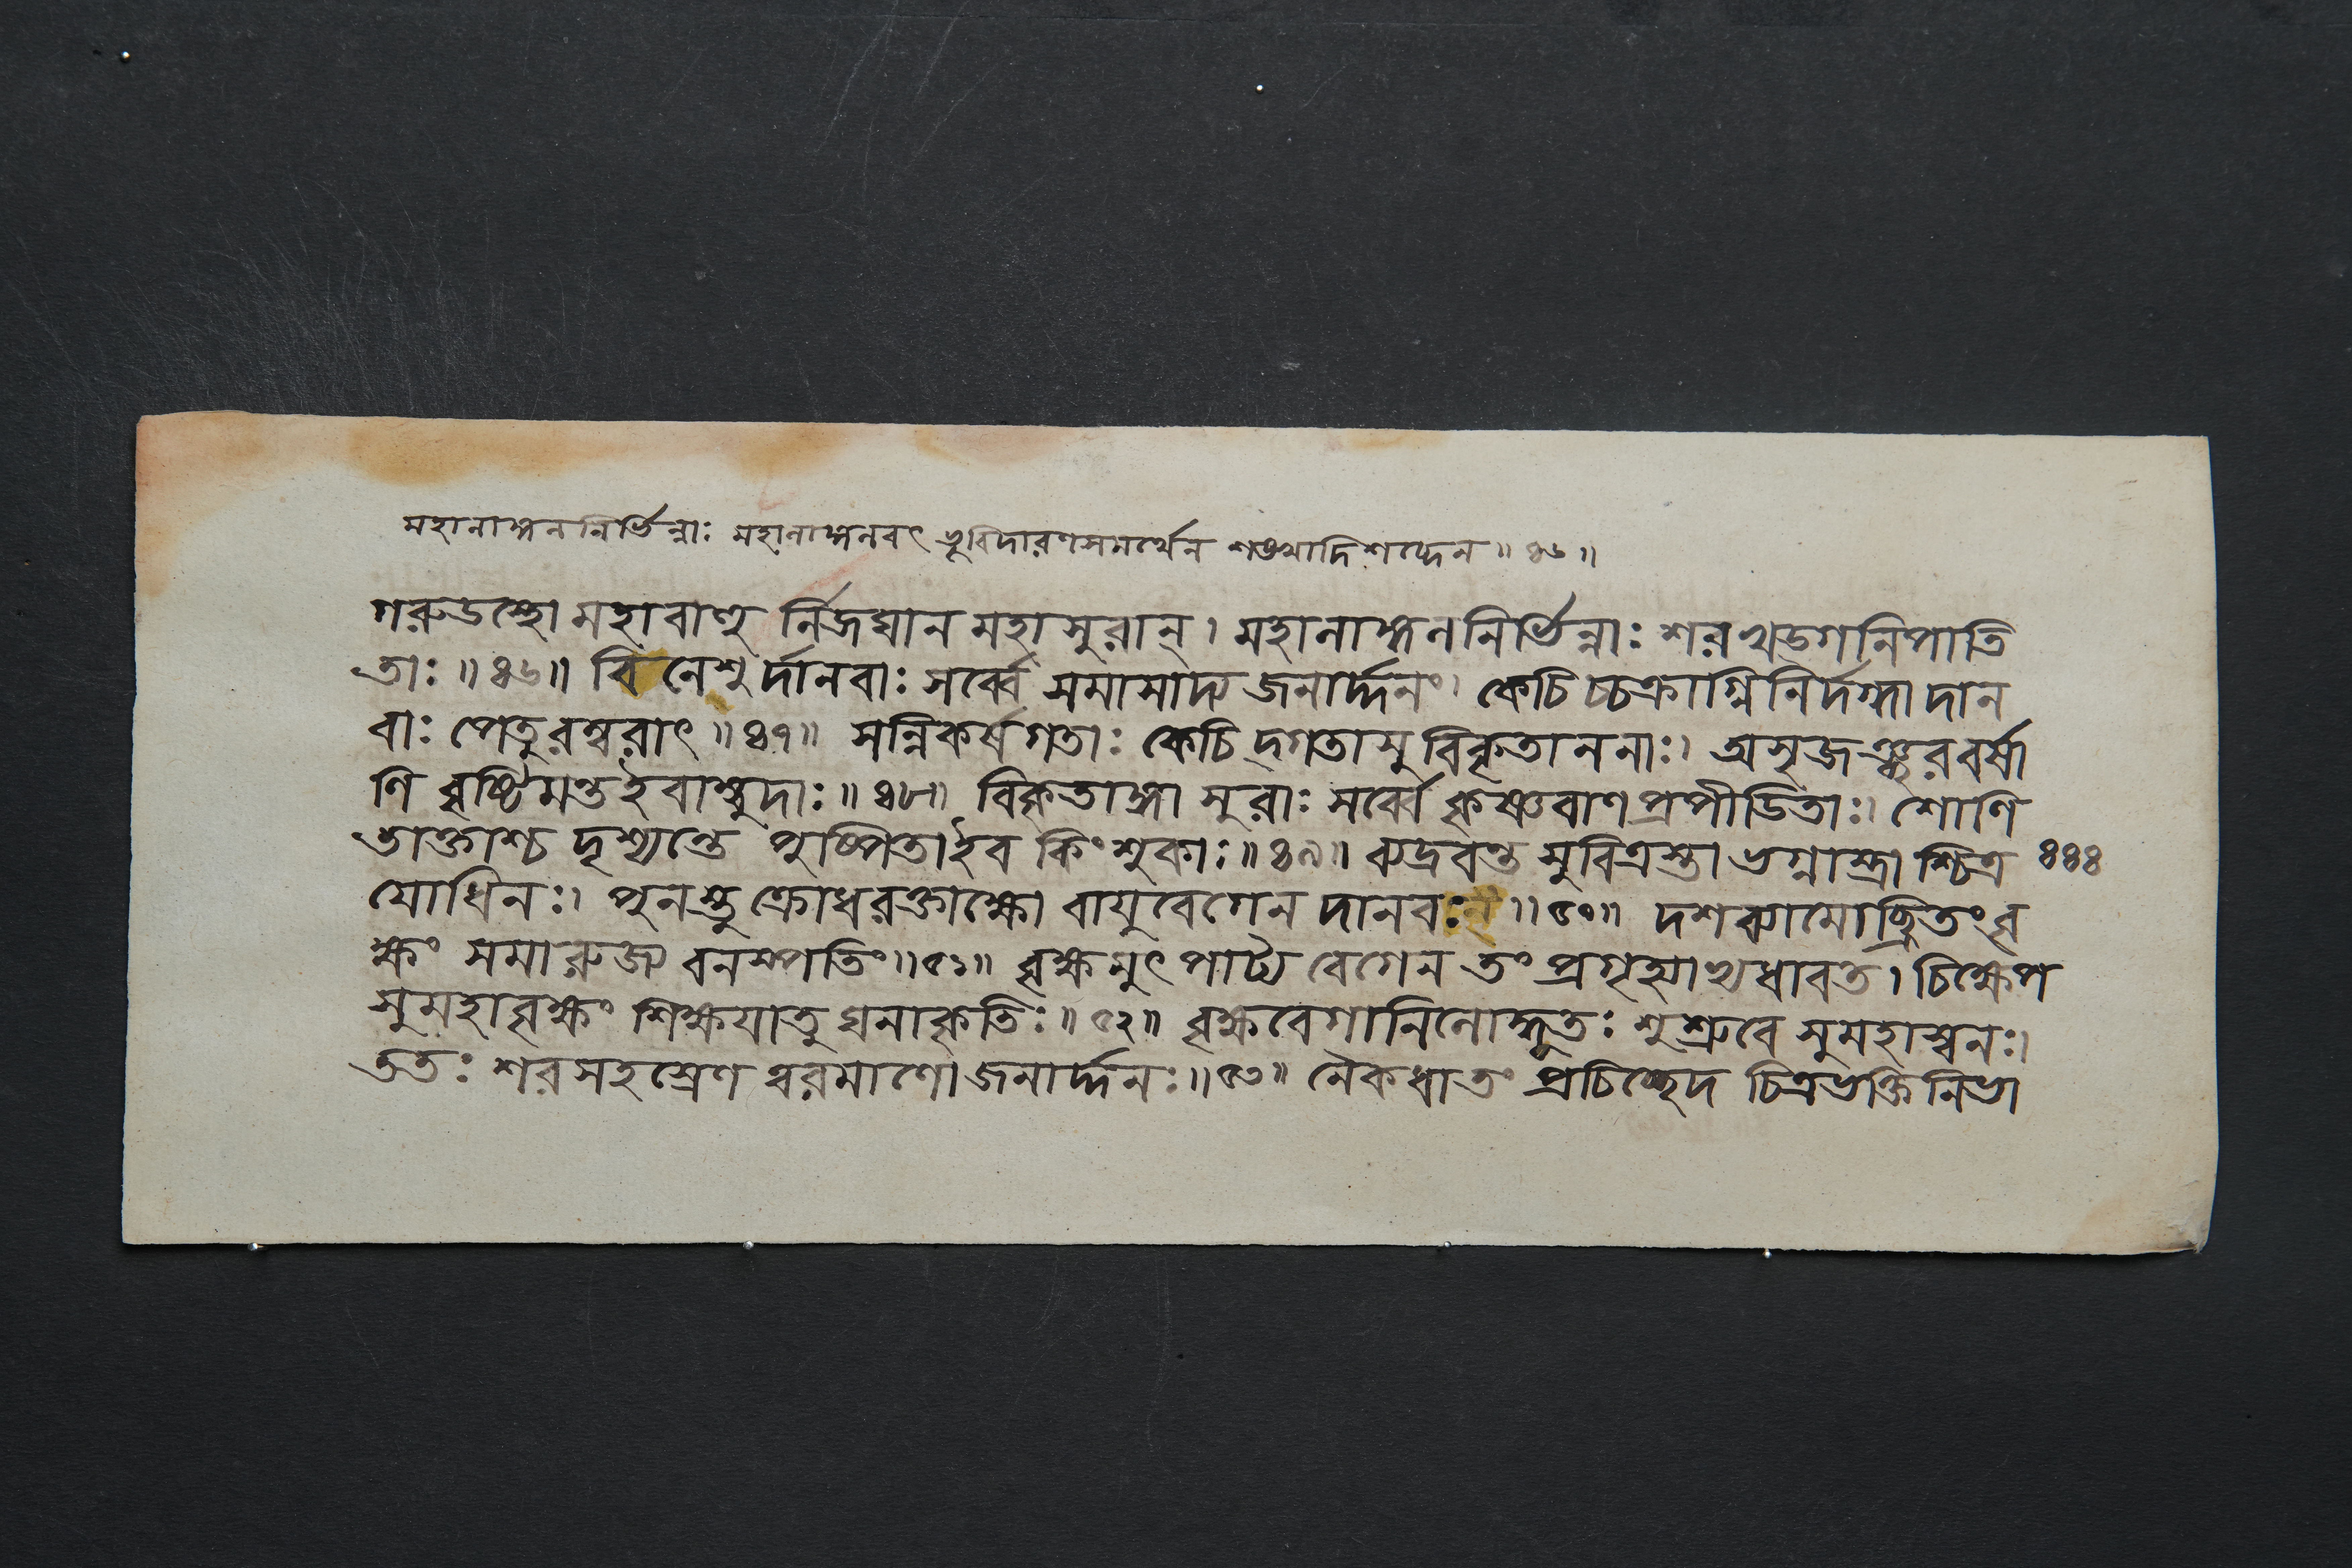 মহানাঙ্গননির্ভিন্নাঃ মহানাঙ্গনবৎ ভূবিদারণসমর্থেন শতঘ্ন্যাদিশব্দেন ॥ ৪৬ ॥
গরুডস্থো মহাবাণু র্নিজঘান মহাসুরান্ । মহানাঙ্গননির্ভিন্নাঃ শরখড্গনিপাতি
তাঃ ॥ ৪৬ ॥ বিনেশুর্দানবাঃ সর্ব্বে সমাসাদ্য জনার্দ্দনং । কেচিচ্চক্রাগ্নিনির্দগ্ধা দান
বাঃ পেতুরম্বরাৎ ॥ ৪৭ ॥ সন্নিকর্ষগতাঃ কেচিদ্গতাসুবিকৃতাননাঃ । অসৃজঞ্ছরবর্ষা
ণি বৃষ্টিমন্তইবাম্বুদাঃ ॥ ৪৮ ॥ বিকৃতাঙ্গা সুরাঃ সর্ব্বে কৃষ্ণবাণপ্রপীডিতাঃ । শোণি
তাক্তাশ্চ দৃশ্যন্তে পুষ্পিতাইব কিংশুকাঃ ॥ ৪৯ ॥ ব্যদ্রবন্ত সুবিত্রস্তা ভগ্নাস্ত্রাশ্চিত্র ৪৪৪
যোধিনঃ । পুনস্তু ক্রোধরক্তাক্ষো বায়ুবেগেন দানবঃ ॥ ৫০ ॥ দশব্যামোচ্ছ্রিতং বৃ
ক্ষং সমারুজ্য বনস্পতিং ॥ ৫১ ॥ বৃক্ষমুৎপাট্য বেগেন তং প্রগৃহ্যাভ্যধাবত । চিক্ষেপ
সুমহাবৃক্ষং শিক্ষযাতু ঘনাকৃতিঃ ॥ ৫২ ॥ বৃক্ষবেগানিলোদ্ভূতঃ শুশ্রুবে সুমহাস্বনঃ ।
ততঃ শরসহস্রেণ ত্বরমাণো জনার্দ্দনঃ ॥ ৫৩ ॥ নৈকধা তং প্রচিচ্ছেদ চিত্রভক্তিনিভা